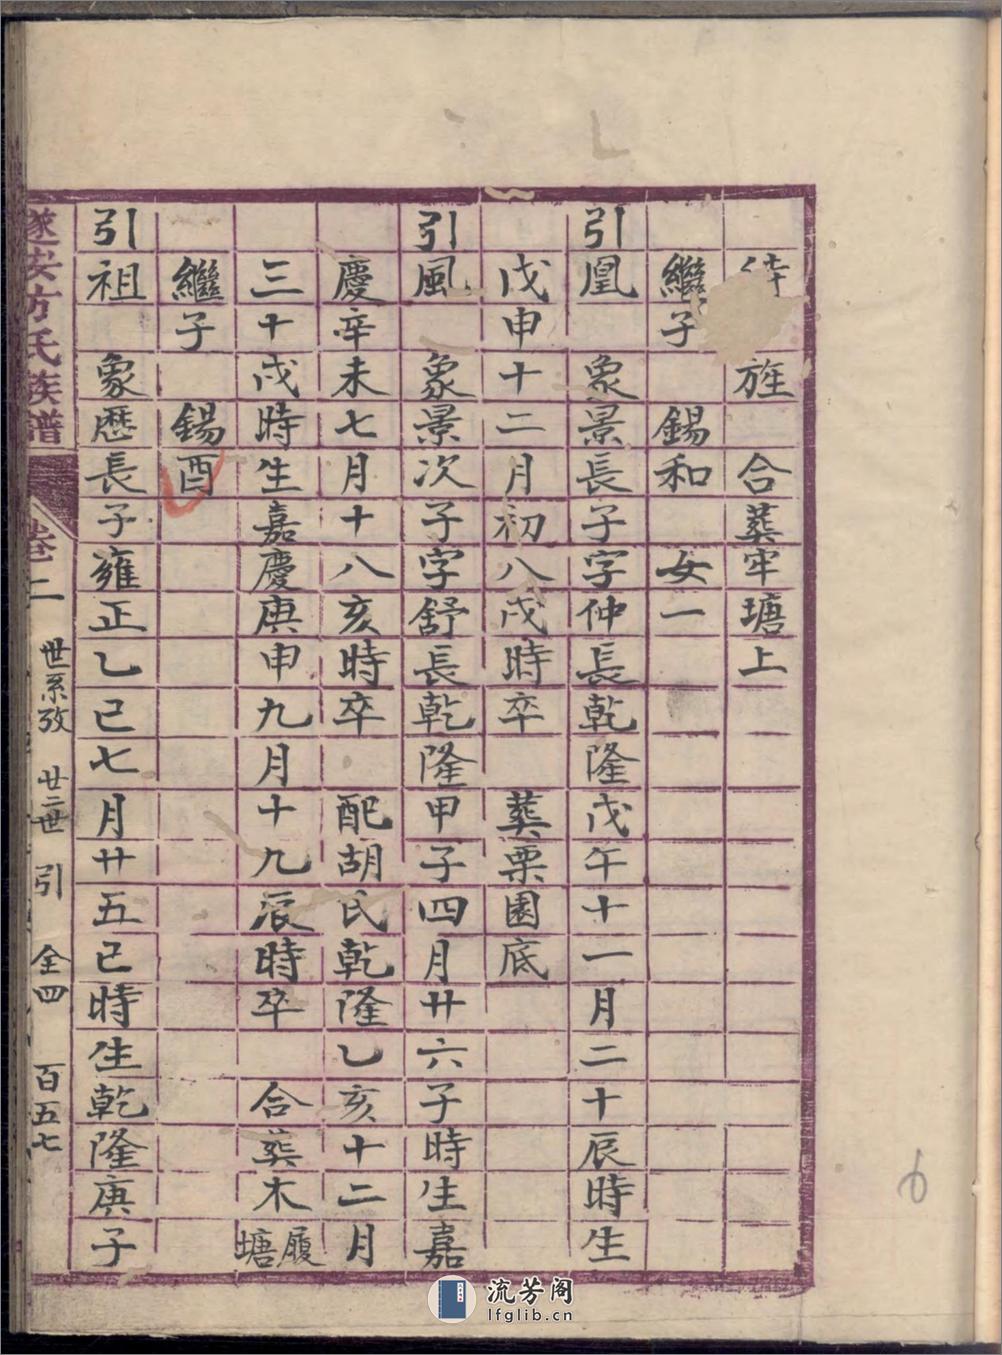 旌 合葬牢塘上
繼子 錫和 女一
引凰 象景長子字仲長乾隆戊午十一月二十辰時生
戊申十二月初八戌時卒 葬栗園底
引風 象景次子字舒長乾隆甲子四月廿六子時生嘉
慶辛未七月十八亥時卒 配胡氏乾隆乙亥十二月
三十戌時生嘉慶庚申九月十九辰時卒 合葬木履塘
繼子 錫酉
引祖 象歷長子雍正乙巳七月廿五巳時生乾隆庚子
遂安方氏族譜 卷二 世系攷 廿二世 引 仝四 百五七
6
流芳阁
lfglib.cn